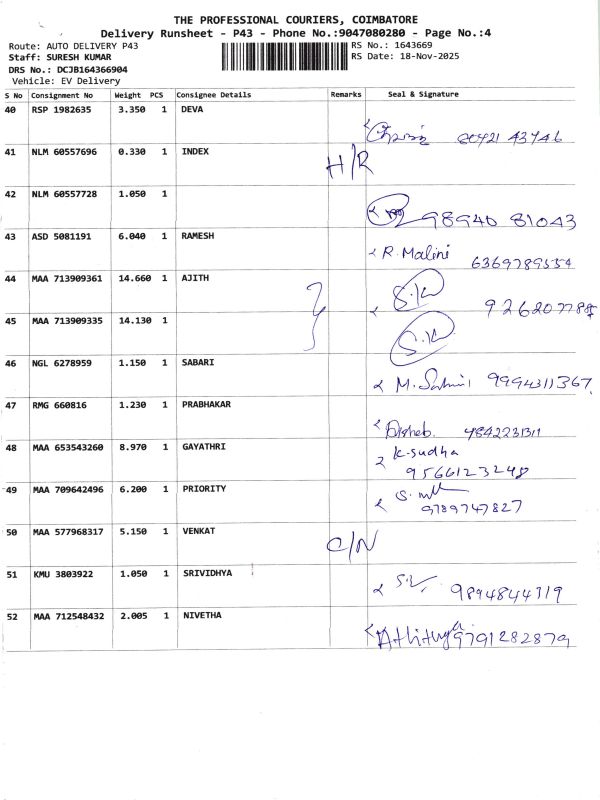 THE PROFESSIONAL COURIERS, COIMBATORE
Delivery Runsheet - P43 - Phone No.:9047080280 - Page No.:4
Route: AUTO DELIVERY P43
RS No.: 1643669
Staff: SURESH KUMAR
RS Date: 18-Nov-2025
DRS No.: DCJB164366904
Vehicle: EV Delivery
S No Consignment No Weight PCS Consignee Details Remarks Seal & Signature
40 RSP 1982635 3.350 1 DEVA
41 NLM 60557696 0.330 1 INDEX H/R
42 NLM 60557728 1.050 1 98940 81043
43 ASD 5081191 6.040 1 RAMESH R. Malini 6369789554
44 MAA 713909361 14.660 1 AJITH S.K
45 MAA 713909335 14.130 1 S.K
46 NGL 6278959 1.150 1 SABARI 9994311367
47 RMG 660816 1.230 1 PRABHAKAR
48 MAA 653543260 8.970 1 GAYATHRI K-sudha
9566123248
49 MAA 709642496 6.200 1 PRIORITY
9789747827
50 MAA 577968317 5.150 1 VENKAT C/N
51 KMU 3803922 1.050 1 SRIVIDHYA 9894844319
52 MAA 712548432 2.005 1 NIVETHA 9791282879